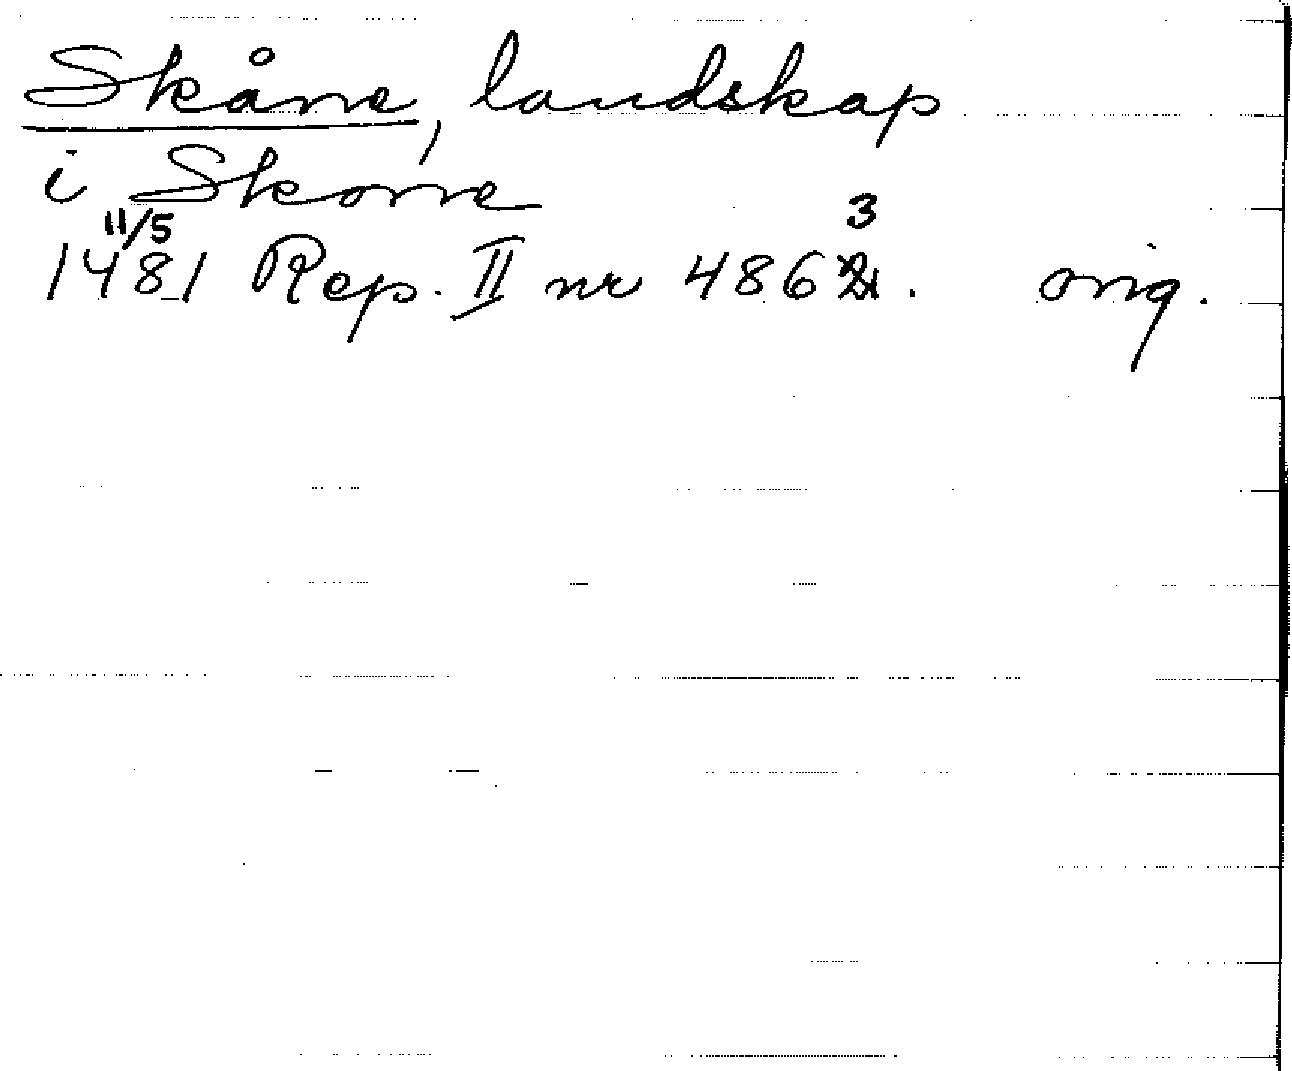 Skåne, landskap
i Skone
11/5 3
1481 Rep. II nr 4862. orig.